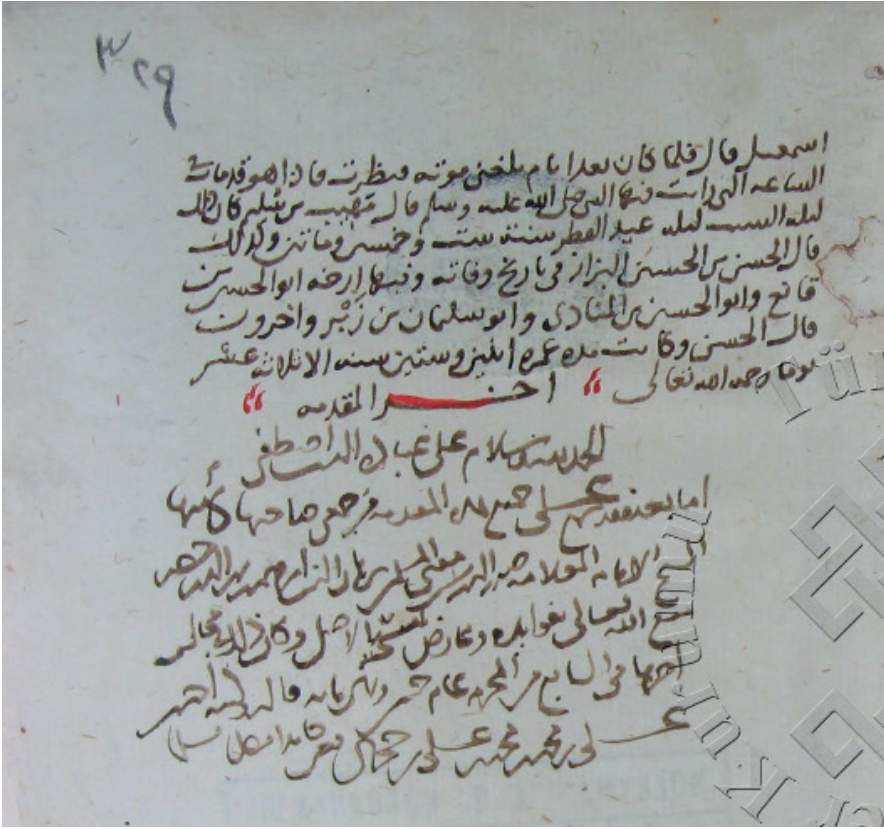 ٣٢٩
اسمعيل قال فلما كان بعد ايام بلغني موته فنظرت فاذا هو قد مات في
الساعة التي رايت فيها النبي صلى الله عليه وسلم قال مهيب بن سليم كان ذلك
ليلة السبت ليلة عيد الفطر سنة ست وخمسين ومائتين وكذلك
قال الحسن بن الحسين البزاز في تاريخ وفاته وفيها ارخه ابو الحسين بن
قانع وابو الحسين بن المنادي وابو سليمان بن زبر واخرون
قال الحسن وكانت مدة عمره اثنين وستين سنة الا ثلاثة عشر
يوما رحمه الله تعالى اخر المقدمه
الحمد لله وسلام على عباده الذين اصطفى
اما بعد فقد سمع علي جميع هذه المقدمه من صاحبها
الامام العلامه مفتي المسلمين
الله تعالى بفوايده وعارض بنسخته الاصل وكان ذلك في مجالس
اخرها في السابع من المحرم عام وثمان مايه قاله احمد
علي بن محمد بن محمد بن علي بن حجر